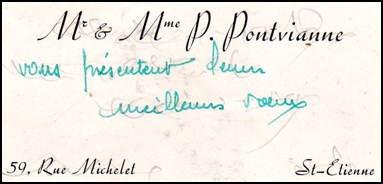 Mr & Mme P. Pontvianne
vous présentent leurs
meilleurs vœux
59, Rue Michelet St-Etienne